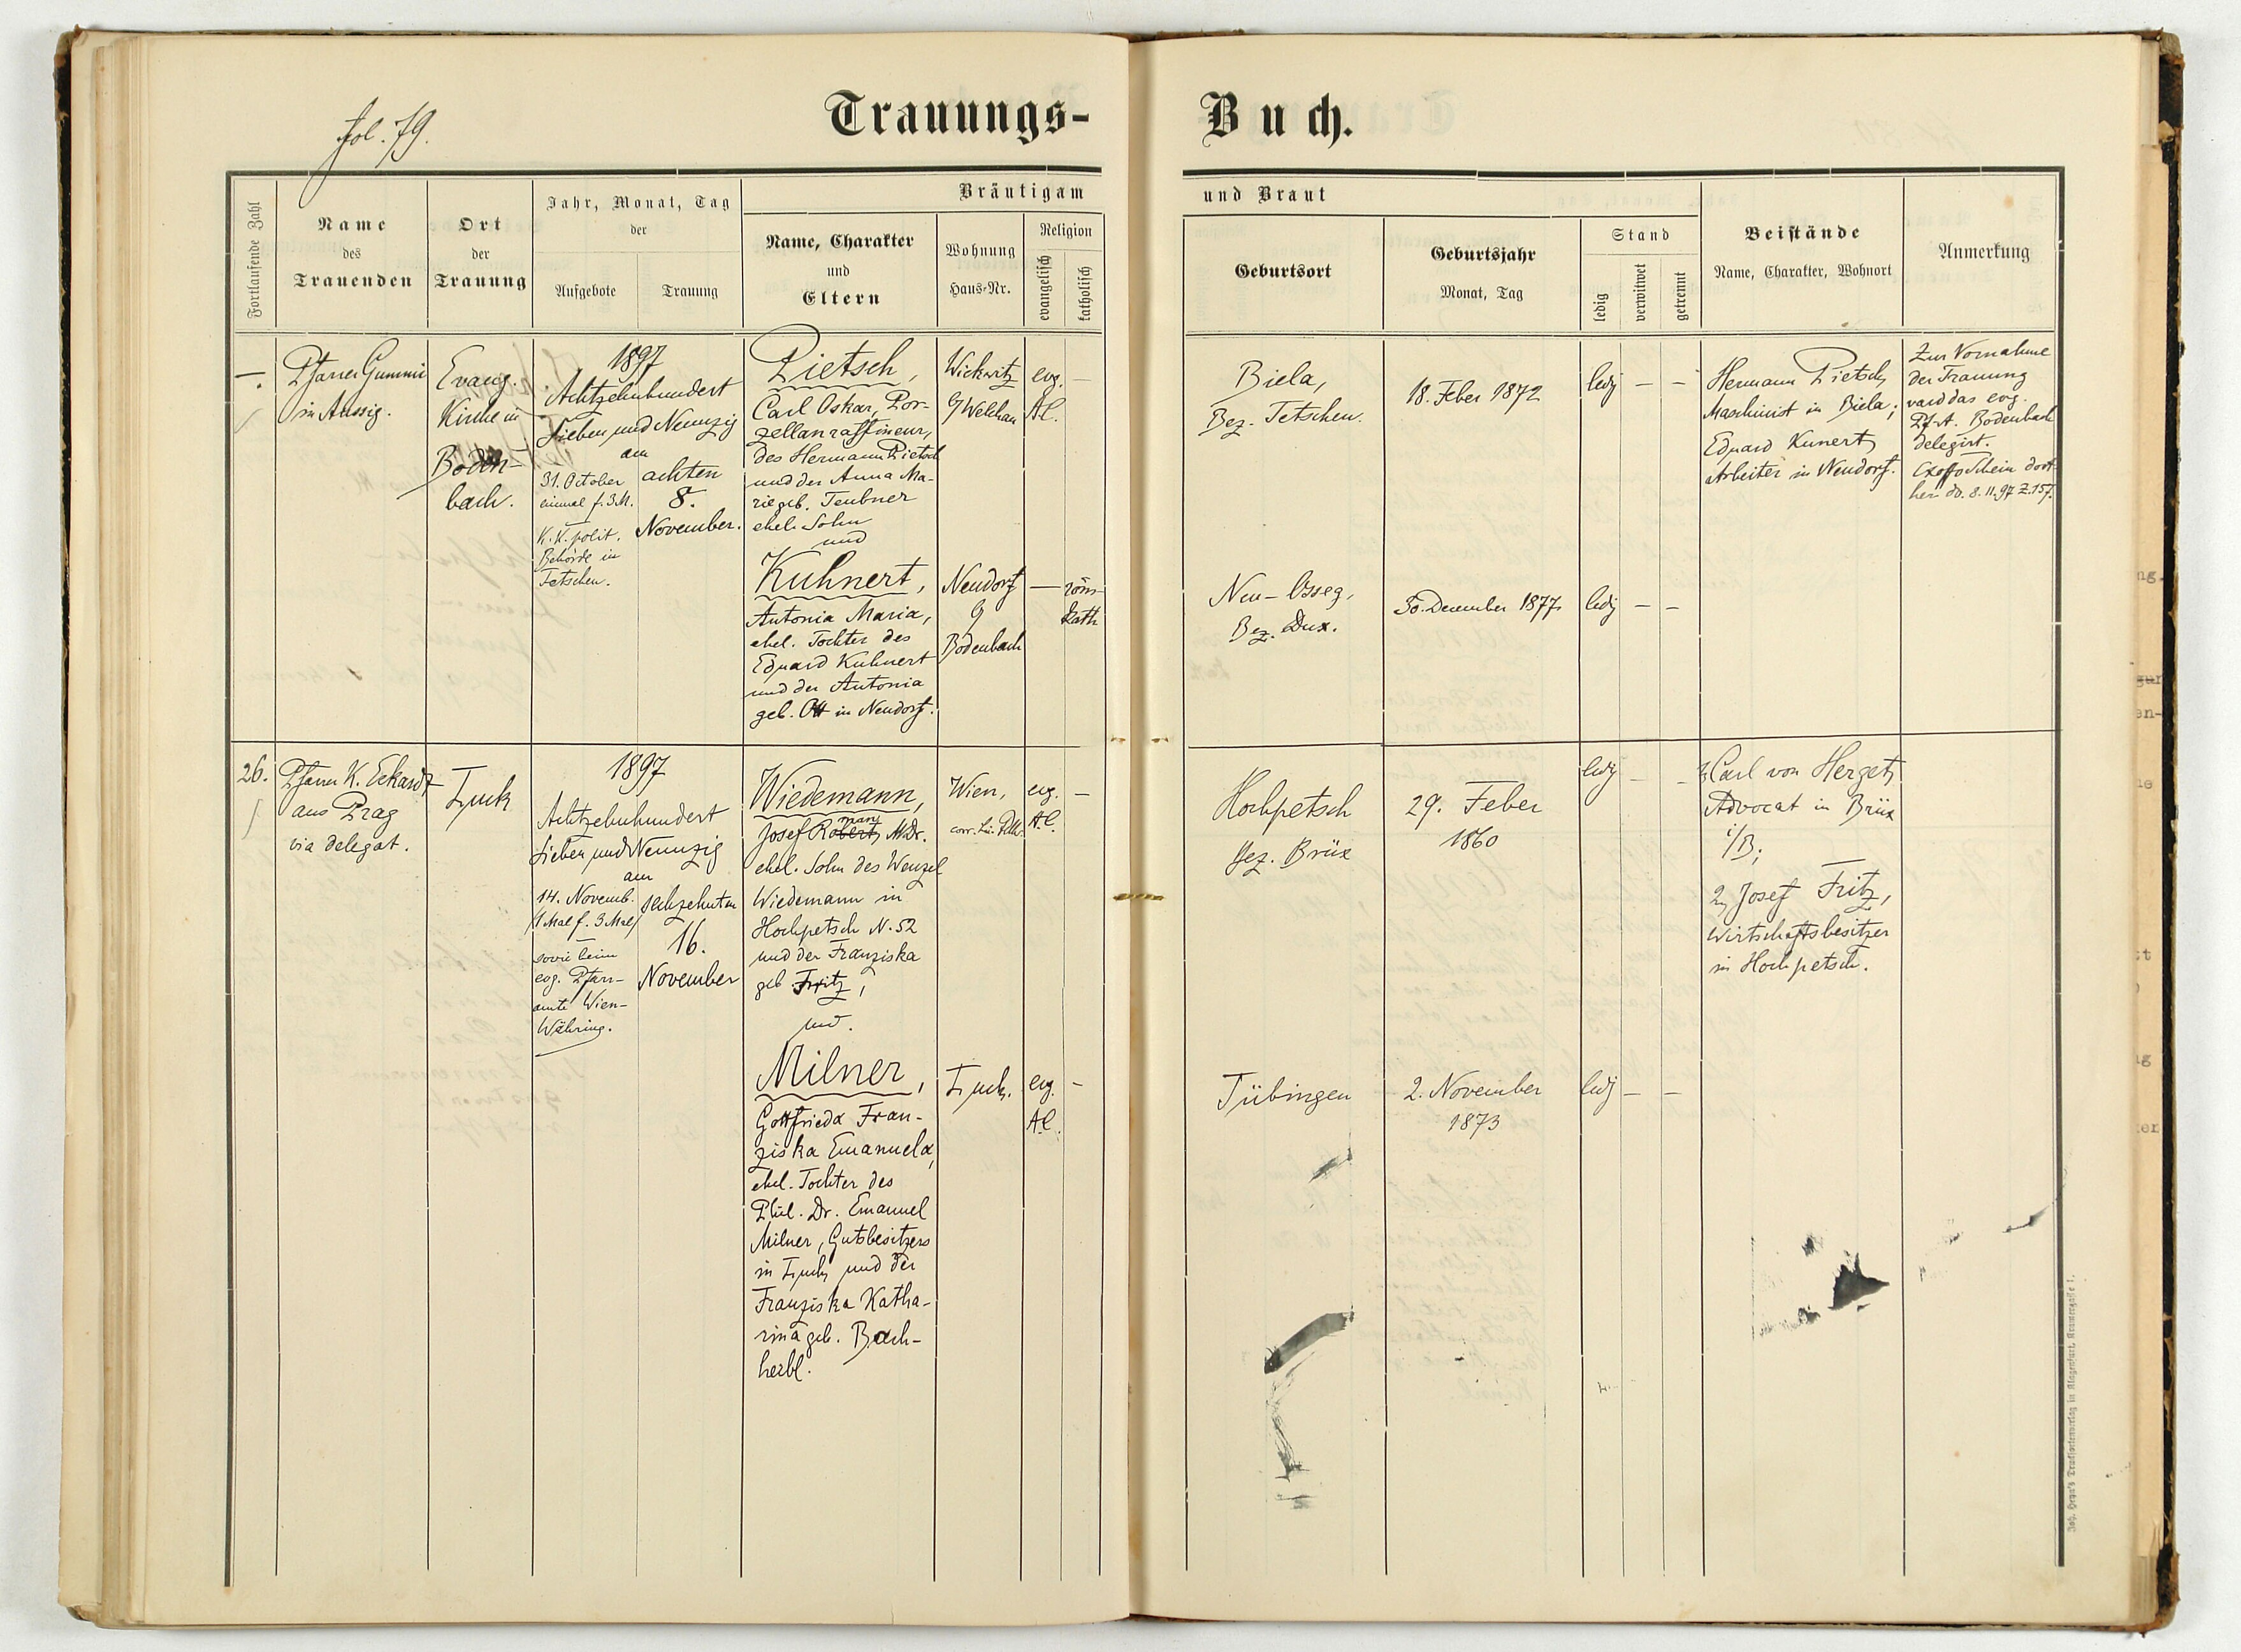 fol. 79.
Trauungs-
Fortlaufende Zahl
Name
des
Trauenden
Ort
der
Trauung
Jahr, Monat, Tag
der
Aufgebote
Trauung
Bräutigam
Name, Charakter
und
Eltern
Wohnung
Haus-Nr.
Religion
evangelisch
katholisch
Buch.
und Braut
Geburtsort
Geburtsjahr
Monat, Tag
Stand
ledig
verwitwet
getrennt
Beistände
Name, Charakter, Wohnort
Anmerkung
—.
Pfarrer Gummi
in Aussig.
Evang.
Kirche in
Boden-
bach.
1897
Achtzehnhundert
Sieben und Neunzig
am
31. October
einmal f. 3 M.
K. K. polit.
Behörde in
Tetschen.
achten
8.
November.
Pietsch,
Carl Oskar, Por-
zellanraffineur,
des Hermann Pietsch
und der Anna Ma-
rie geb. Teubner
ehel. Sohn
und
Kuhnert,
Antonia Maria,
ehel. Tochter des
Eduard Kuhnert
und der Antonia
geb. Ott in Neudorf.
Wickwitz
Welchau
Neudorf
Bodenbach
evg. —
A.C.
— röm.
kath
Biela,
Bez. Tetschen.
18. Feber 1872
ledig — —
Neu-Osseg,
Bez. Dux.
30. December 1877
ledig — —
Hermann Pietsch,
Maschinist in Biela;
Eduard Kunert,
Arbeiter in Neudorf.
Zur Vornahme
der Trauung
ward das evg.
Pf-A. Bodenbach
delegirt.
Exoffo Schein dort-
her do. 8.11.97 Z.157.
26.
Pfarrer K. Eckardt
aus Prag
via delegat.
Luck
1897
Achtzehnhundert
sieben und Neunzig
am
14. Novemb.
/1 Mal f. 3 Mal/
sowie beim
evg. Pfarr-
amte Wien-
Währing.
sechzehnten
16.
November
Wiedemann,
Josef Robert, M.Dr.
man
ehel. Sohn des Wenzel
Wiedemann in
Hochpetsch N. 52
und der Franziska
geb Fritz,
und.
Milner,
Gottfrieda Fran-
ziska Emanuela,
ehel. Tochter des
Phil. Dr. Emanuel
Milner, Gutsbesitzers
in Luck, und der
Franziska Katha-
rina geb. Bach-
herbl.
Wien,
Luck.
evg. —
A.C.
evg. —
A.C.
Hochpetsch
Bez. Brüx
29. Feber
1860
ledig — —
Tübingen
2. November
1873
ledig — —
Carl von Hergetz,
Advocat in Brüx
i/B;
2, Josef Fritz,
Wirtschaftsbesitzer
in Hochpetsch.